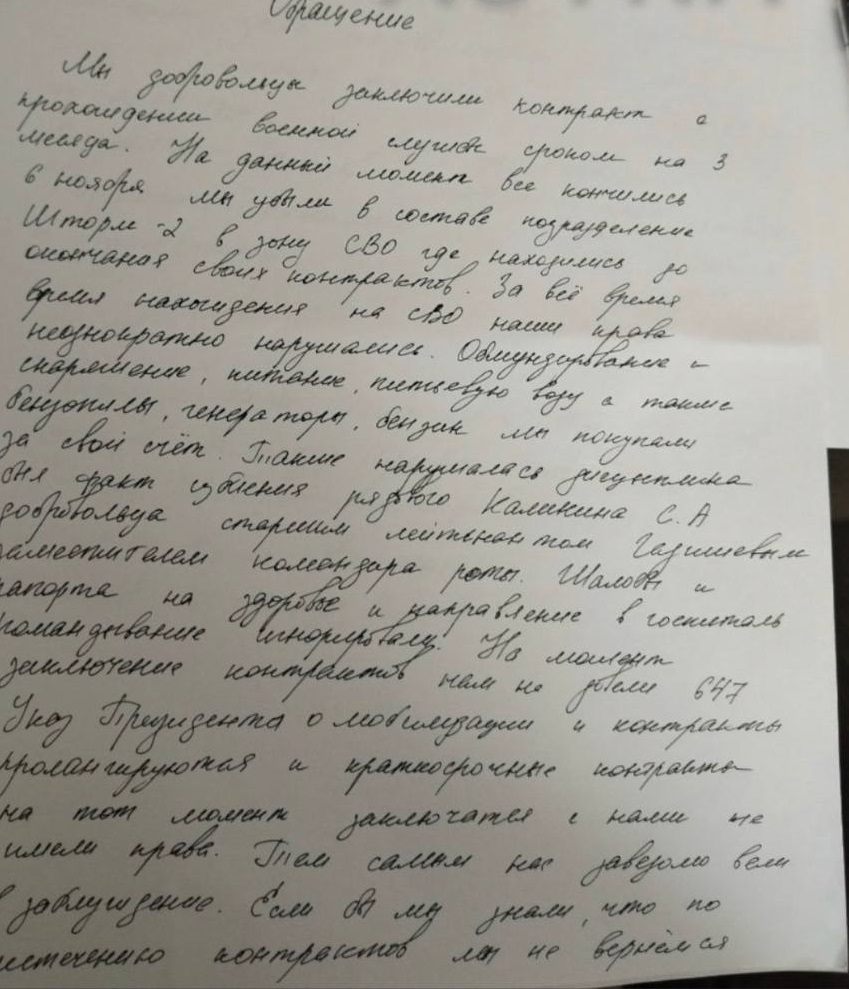 Обращение
Мы добровольцы заключили контракт о
прохождении военной службе сроком на 3
месяца. На данный момент все кончились
6 ноября мы убыли в составе подразделение
Шторм-2 в зону СВО где находились до
окончания своих контрактов. За всё время
время нахождения на СВО наши права
неоднократно нарушались. Обмундирование и
снаряжение, питание, питьевую воду а также
бензопилы, генераторы, бензин мы покупали
за свой счёт. Также нарушалась дисциплина
был факт избиения рядового Калинина С.А
добровольца старшим лейтенантом
заместителем командира роты. Жалобы и
рапорта на здоровье и направление в госпиталь
командывание игнорировали. На момент
заключение контрактов нам не довели 647
Указ Президента о мобилизации и контракты
пролангируются и краткосрочные контракты
на тот момент заключатся с нами не
имели права. Тем самым нас заведомо вели
в заблуждение. Если бы мы знали, что по
истечению контрактов мы не вернёмся